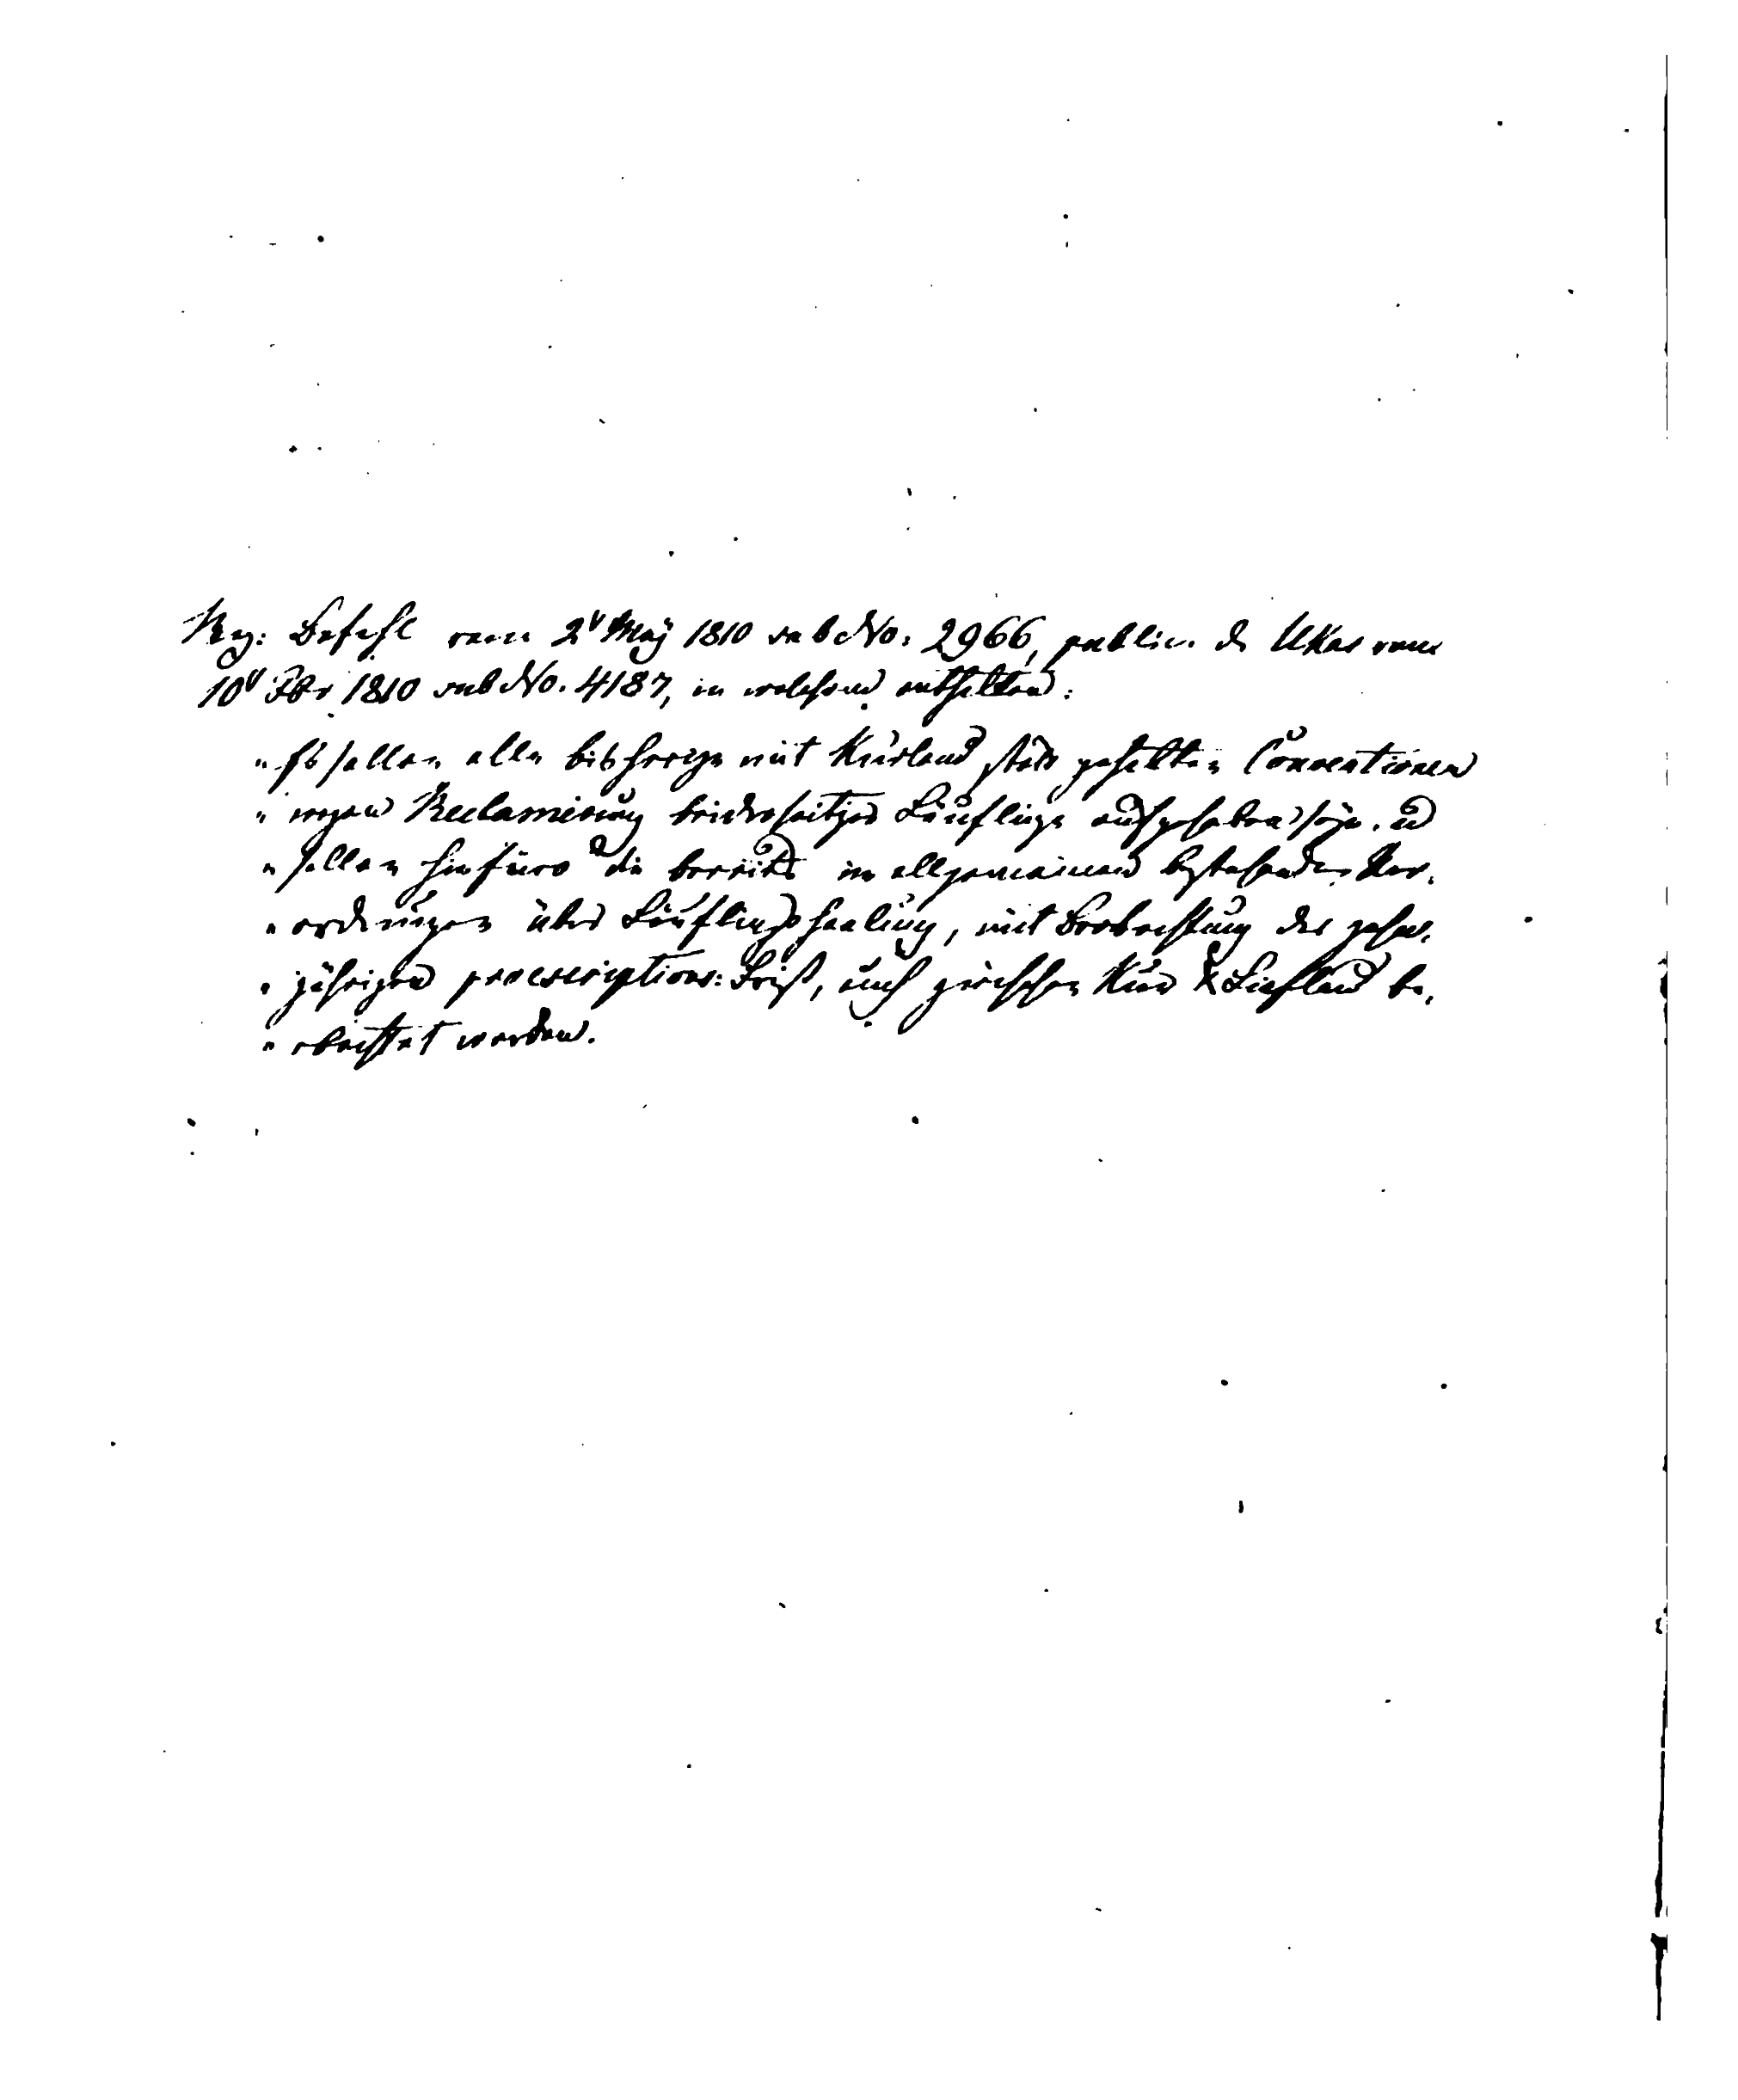 Reg: Befehl vom 2t May 1810 sub No. 2966, public. d. Ukas vom
10t Fbr 1810 sub No. 4187, in welchem enthalten:
"Es sollen alle bisherige mit Kurland statt gehabten Conventionen
"wegen Reclamirung beiderseitiger Läuflinge aufgehoben seyn. u
"sollen hinfüro die bereits im allgemeinen bestehenden Ver,
"ordnungen über Läuflingshehlung, mit Beobachtung der zehn,
"jährigen praescriptions: Frist, auch zwischen Kur & Liefland be,
"obachtet werden.